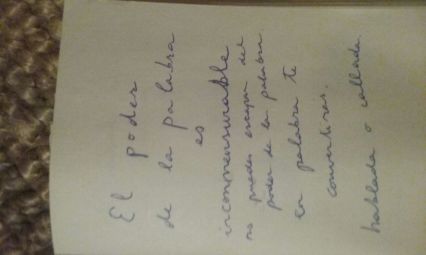 El poder
de la palabra
es
inconmensurable
no puedes escapar del
poder de la palabra
en palabra te
convertiras.
hablada o callada.